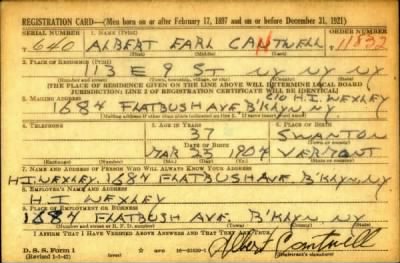 REGISTRATION CARD—(Men born on or after February 17, 1897 and on or before December 31, 1921)
SERIAL NUMBER 1. NAME (Print) ORDER NUMBER
T 640 ALBERT EARL CANTWELL 11832
2. PLACE OF RESIDENCE (Print)
113 E 9 ST NY NY NY
(Number and street) (Town, township, village, or city) (County) (State)
[THE PLACE OF RESIDENCE GIVEN ON THE LINE ABOVE WILL DETERMINE LOCAL BOARD
JURISDICTION; LINE 2 OF REGISTRATION CERTIFICATE WILL BE IDENTICAL]
3. MAILING ADDRESS c/o H.I. WEXLEY
1684 FLATBUSH AVE. B'KLYN. N.Y.
[Mailing address if other than place indicated on line 2. If same insert word same]
4. TELEPHONE 5. AGE IN YEARS 6. PLACE OF BIRTH
37 SWANTON
DATE OF BIRTH (Town or county)
MAR 25 1904 VERMONT
(Exchange) (Number) (Mo.) (Day) (Yr.) (State or country)
7. NAME AND ADDRESS OF PERSON WHO WILL ALWAYS KNOW YOUR ADDRESS
H.I. WEXLEY, 1684 FLATBUSH AVE B'KLYN, NY
8. EMPLOYER'S NAME AND ADDRESS
H.I WEXLEY
9. PLACE OF EMPLOYMENT OR BUSINESS
1684 FLATBUSH AVE. B'KLYN. NY
(Number and street or R. F. D. number) (Town) (County) (State)
I AFFIRM THAT I HAVE VERIFIED ABOVE ANSWERS AND THAT THEY ARE TRUE.
D. S. S. Form 1
(Revised 1-1-42) (over) Albert Cantwell
(Registrant's signature)